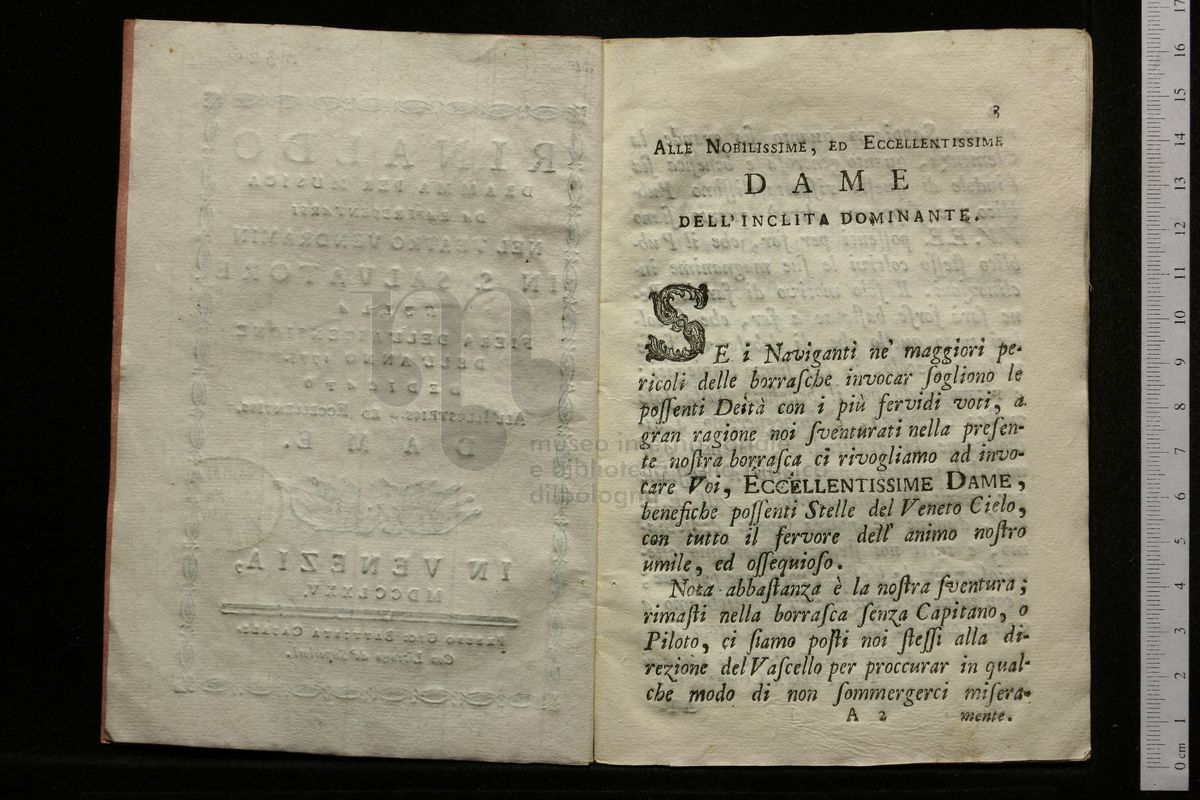 3
ALLE NOBILISSIME, ED ECCELLENTISSIME
DAME
DELL'INCLITA DOMINANTE.
SE i Naviganti ne' maggiori pe-
ricoli delle borraſche invocar ſogliono le
poſſenti Deità con i più fervidi voti, a
gran ragione noi ſventurati nella preſen-
te noſtra borraſca ci rivogliamo ad invo-
care Voi, ECCELLENTISSIME DAME,
benefiche poſſenti Stelle del Veneto Cielo,
con tutto il fervore dell' animo noſtro
umile, ed oſſequioſo.
Nota abbaſtanza è la noſtra ſventura;
rimaſti nella borraſca ſenza Capitano, o
Piloto, ci ſiamo poſti noi ſteſſi alla di-
rezione del Vaſcello per proccurar in qual-
che modo di non ſommergerci miſera-
A 2 mente.
RINALDO
DRAMMA PER MUSICA
DA RAPPRESENTARSI
NEL TEATRO VENDRAMIN
IN S. SALVATORE
LA
FIERA DELL'
DELL'ANNO
DEDICATO
DAME.
IN VENEZIA,
MDCCLXXV.
museo in
e biblioteca
di bologna
0 cm 1 2 3 4 5 6 7 8 9 10 11 12 13 14 15 16 17